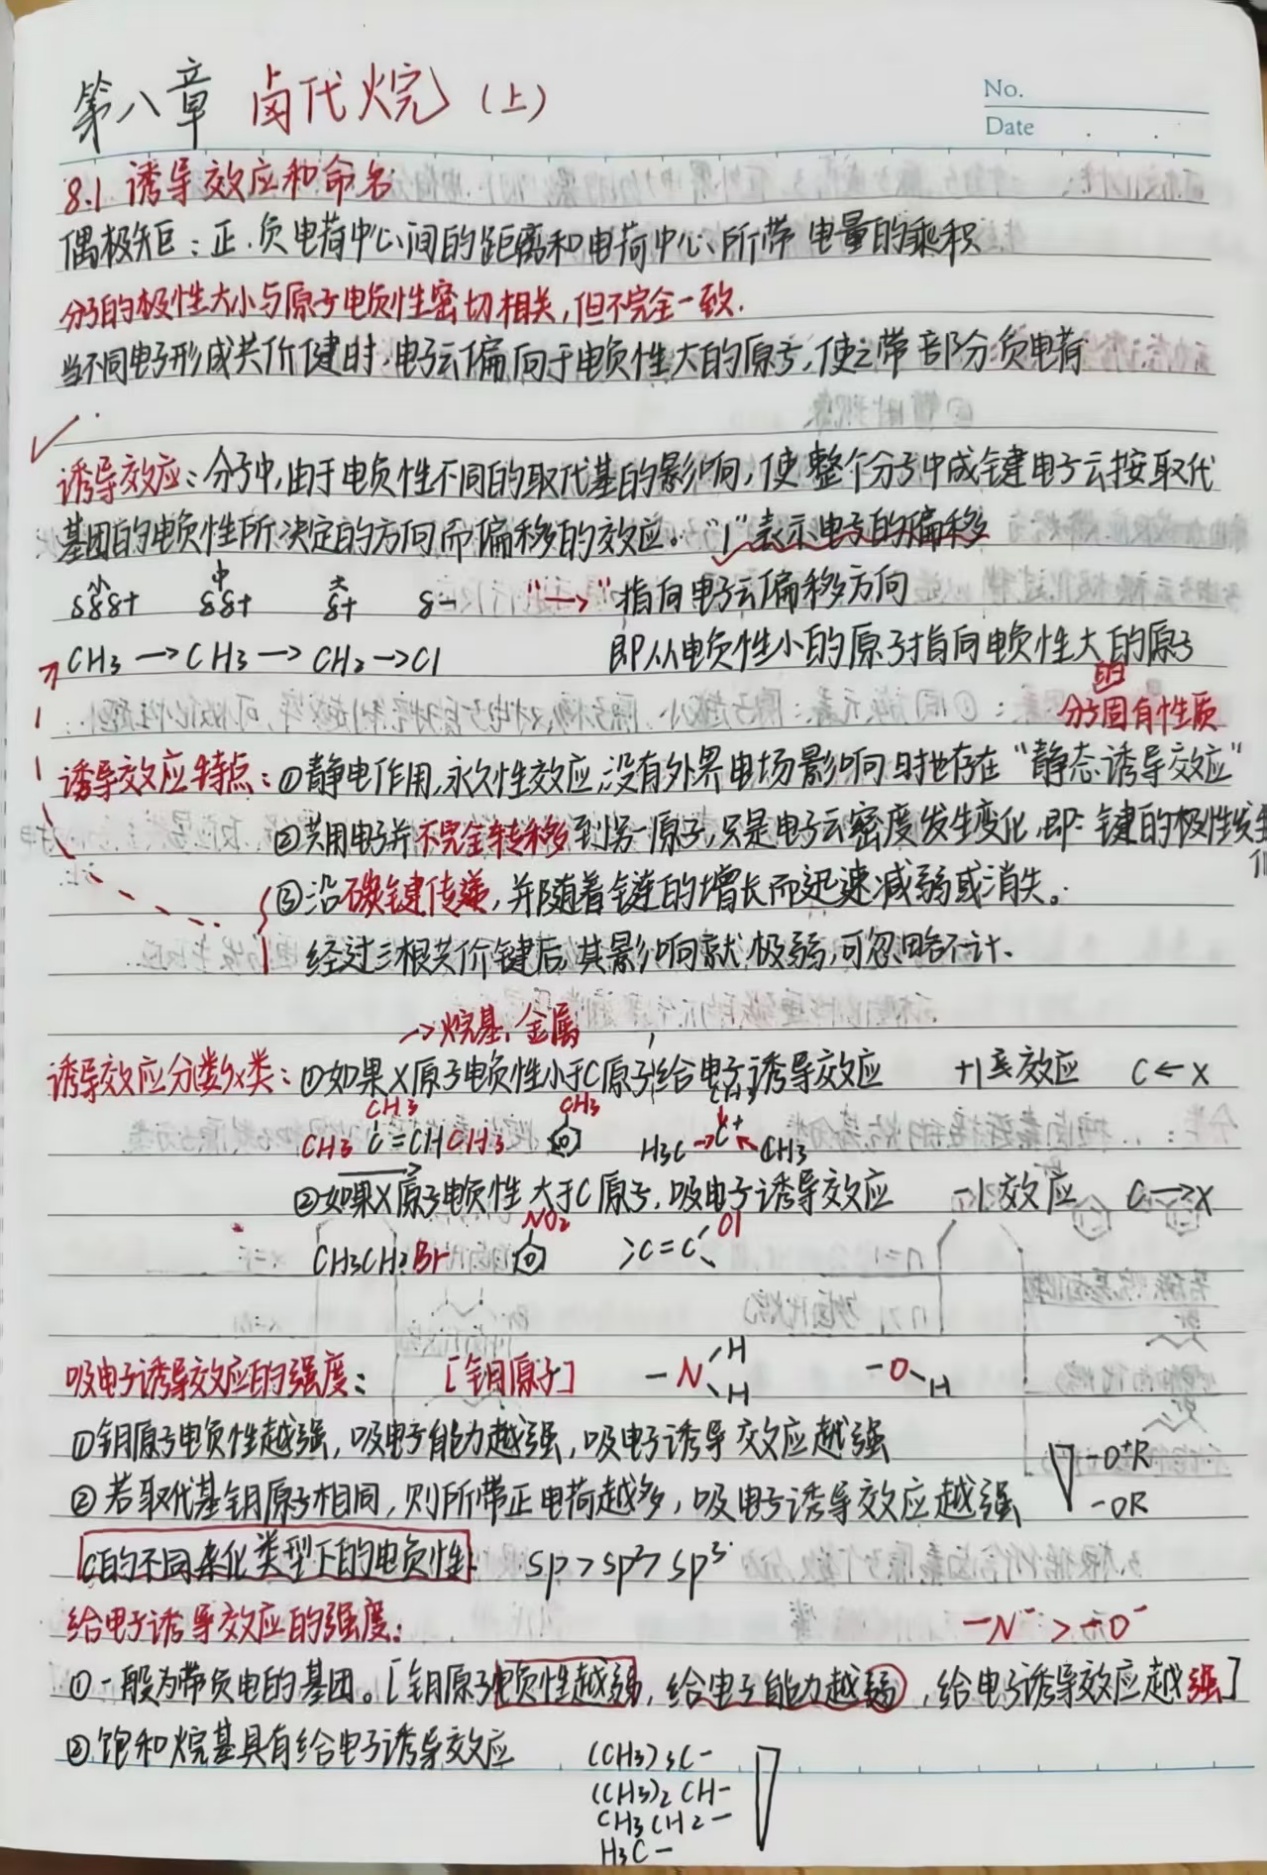 第八章 卤代烷（上）
No.
Date
8.1 诱导效应和命名
偶极矩：正.负电荷中心间的距离和电荷中心所带电量的乘积
分子的极性大小与原子电负性密切相关,但不完全一致.
当不同电子形成共价健时,电子云偏向于电负性大的原子,使之带部分负电荷
诱导效应：分子中,由于电负性不同的取代基的影响,使整个分子中成键电子云按取代
基团的电负性所决定的方向而偏移的效应。“I”表示电子的偏移
小 中 大
δδδ+ δδ+ δ+ δ- “→”指向电子云偏移方向
CH3→CH3→CH2→Cl 即从电负性小的原子指向电负性大的原子
的
分子固有性质
诱导效应特点：①静电作用,永久性效应,没有外界电场影响时也存在“静态诱导效应”
②共用电子并不完全转移到另一原子,只是电子云密度发生变化,即：键的极性发生
③沿碳键传递,并随着键的增长而迅速减弱或消失。
经过三根共价键后,其影响就极弱,可忽略不计.
→烷基、金属
诱导效应分类：①如果X原子电负性小于C原子,给电子诱导效应 +I效应 C←X
CH3 CH3 CH3
CH3 C=CHCH3 H3C→C+←CH3
②如果X原子电负性大于C原子,吸电子诱导效应 -I效应 C→X
NO2 Cl
CH3CH2Br C=C
吸电子诱导效应的强度： [钥原子] -N H H -O H
①钥原子电负性越强,吸电子能力越强,吸电子诱导效应越强
-O+R
②若取代基钥原子相同,则所带正电荷越多,吸电子诱导效应越强
-OR
C的不同杂化类型下的电负性： sp>sp2>sp3
给电子诱导效应的强度： -N->-O-
①一般为带负电的基团。[钥原子电负性越弱,给电子能力越弱,给电子诱导效应越强]
②饱和烷基具有给电子诱导效应
(CH3)3C-
(CH3)2CH-
CH3CH2-
H3C-